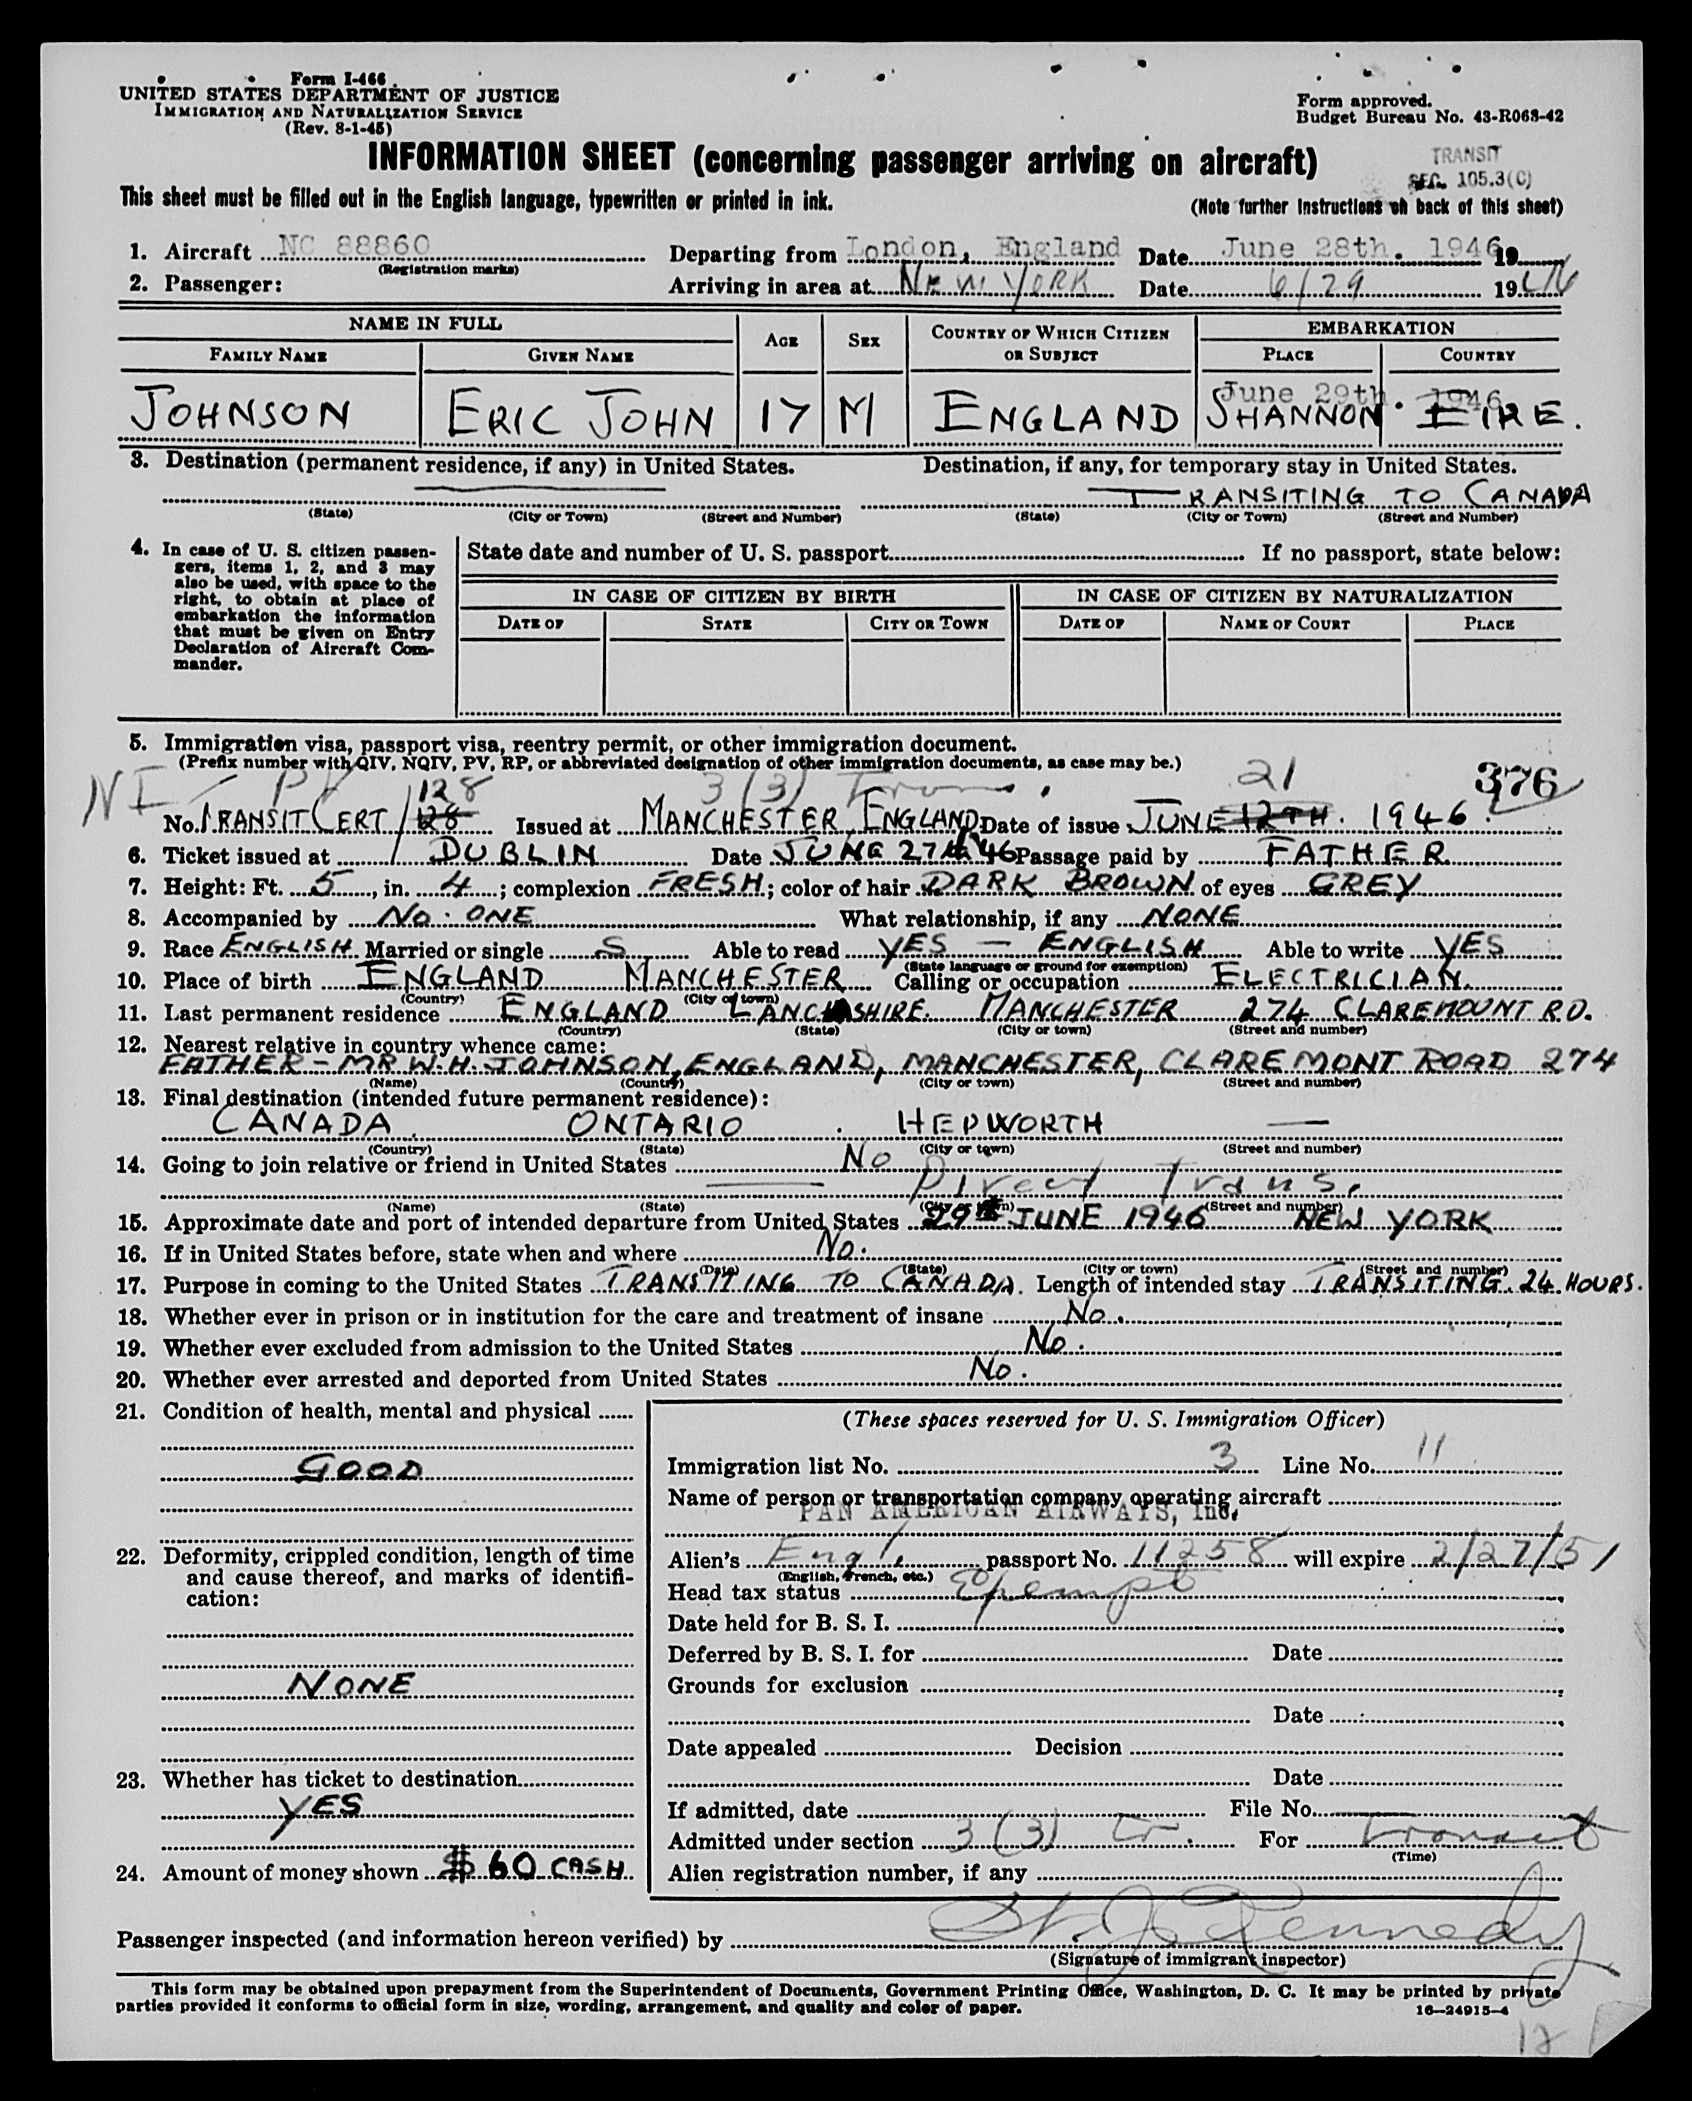 Form I-466
UNITED STATES DEPARTMENT OF JUSTICE
IMMIGRATION AND NATURALIZATION SERVICE
(Rev. 8-1-45)
Form approved.
Budget Bureau No. 43-R068-42
INFORMATION SHEET (concerning passenger arriving on aircraft)
TRANSIT
SEC. 105.3(C)
This sheet must be filled out in the English language, typewritten or printed in ink.
(Note further Instructions on back of this sheet)
1. Aircraft NC 88860 Departing from London, England Date June 28th. 1946 19
(Registration marks)
2. Passenger: Arriving in area at NEW YORK Date 6/29 1946
NAME IN FULL AGE SEX COUNTRY OF WHICH CITIZEN OR SUBJECT EMBARKATION
FAMILY NAME GIVEN NAME PLACE COUNTRY
June 29th. 1946
JOHNSON ERIC JOHN 17 M ENGLAND SHANNON EIRE.
3. Destination (permanent residence, if any) in United States. Destination, if any, for temporary stay in United States.
TRANSITING TO CANADA
(State) (City or Town) (Street and Number) (State) (City or Town) (Street and Number)
4. In case of U. S. citizen passen-
gers, items 1, 2, and 3 may
also be used, with space to the
right, to obtain at place of
embarkation the information
that must be given on Entry
Declaration of Aircraft Com-
mander.
State date and number of U. S. passport If no passport, state below:
IN CASE OF CITIZEN BY BIRTH IN CASE OF CITIZEN BY NATURALIZATION
DATE OF STATE CITY OR TOWN DATE OF NAME OF COURT PLACE
5. Immigration visa, passport visa, reentry permit, or other immigration document.
(Prefix number with QIV, NQIV, PV, RP, or abbreviated designation of other immigration documents, as case may be.)
NI - PV 128 3(3) Trans. 21 376
No. TRANSIT CERT / 128 Issued at MANCHESTER, ENGLAND Date of issue JUNE 12TH. 1946.
6. Ticket issued at DUBLIN Date JUNE 27th '46 Passage paid by FATHER
7. Height: Ft. 5, in. 4; complexion FRESH; color of hair DARK BROWN of eyes GREY
8. Accompanied by NO. ONE What relationship, if any NONE
9. Race ENGLISH Married or single S Able to read YES — ENGLISH Able to write YES
(State language or ground for exemption)
10. Place of birth ENGLAND MANCHESTER Calling or occupation ELECTRICIAN.
(Country) (City or town)
11. Last permanent residence ENGLAND LANCASHIRE. MANCHESTER 274 CLAREMOUNT RD.
(Country) (State) (City or town) (Street and number)
12. Nearest relative in country whence came:
FATHER - MR W.H. JOHNSON, ENGLAND, MANCHESTER, CLAREMONT ROAD 274
(Name) (Country) (City or town) (Street and number)
13. Final destination (intended future permanent residence):
CANADA. ONTARIO. HEPWORTH —
(Country) (State) (City or town) (Street and number)
14. Going to join relative or friend in United States No
Direct Trans.
(Name) (State) (City or town) (Street and number)
15. Approximate date and port of intended departure from United States 29th JUNE 1946 NEW YORK
16. If in United States before, state when and where No.
(Date) (State) (City or town) (Street and number)
17. Purpose in coming to the United States TRANSITING TO CANADA. Length of intended stay TRANSITING. 24 HOURS.
18. Whether ever in prison or in institution for the care and treatment of insane No.
19. Whether ever excluded from admission to the United States No.
20. Whether ever arrested and deported from United States No.
21. Condition of health, mental and physical
GOOD
22. Deformity, crippled condition, length of time
and cause thereof, and marks of identifi-
cation:
NONE
23. Whether has ticket to destination
YES
24. Amount of money shown $ 60 CASH
(These spaces reserved for U. S. Immigration Officer)
Immigration list No. 3 Line No. 11
Name of person or transportation company operating aircraft
PAN AMERICAN AIRWAYS, Inc.
Alien's Engl. passport No. 11258 will expire 2/27/51
(English, French, etc.)
Head tax status Exempt
Date held for B. S. I.
Deferred by B. S. I. for Date
Grounds for exclusion
Date
Date appealed Decision
Date
If admitted, date File No.
Admitted under section 3(3) Tr. For Transit
(Time)
Alien registration number, if any
Passenger inspected (and information hereon verified) by St. J. Kennedy
(Signature of immigrant inspector)
This form may be obtained upon prepayment from the Superintendent of Documents, Government Printing Office, Washington, D. C. It may be printed by private
parties provided it conforms to official form in size, wording, arrangement, and quality and color of paper.
16—24915-4
12